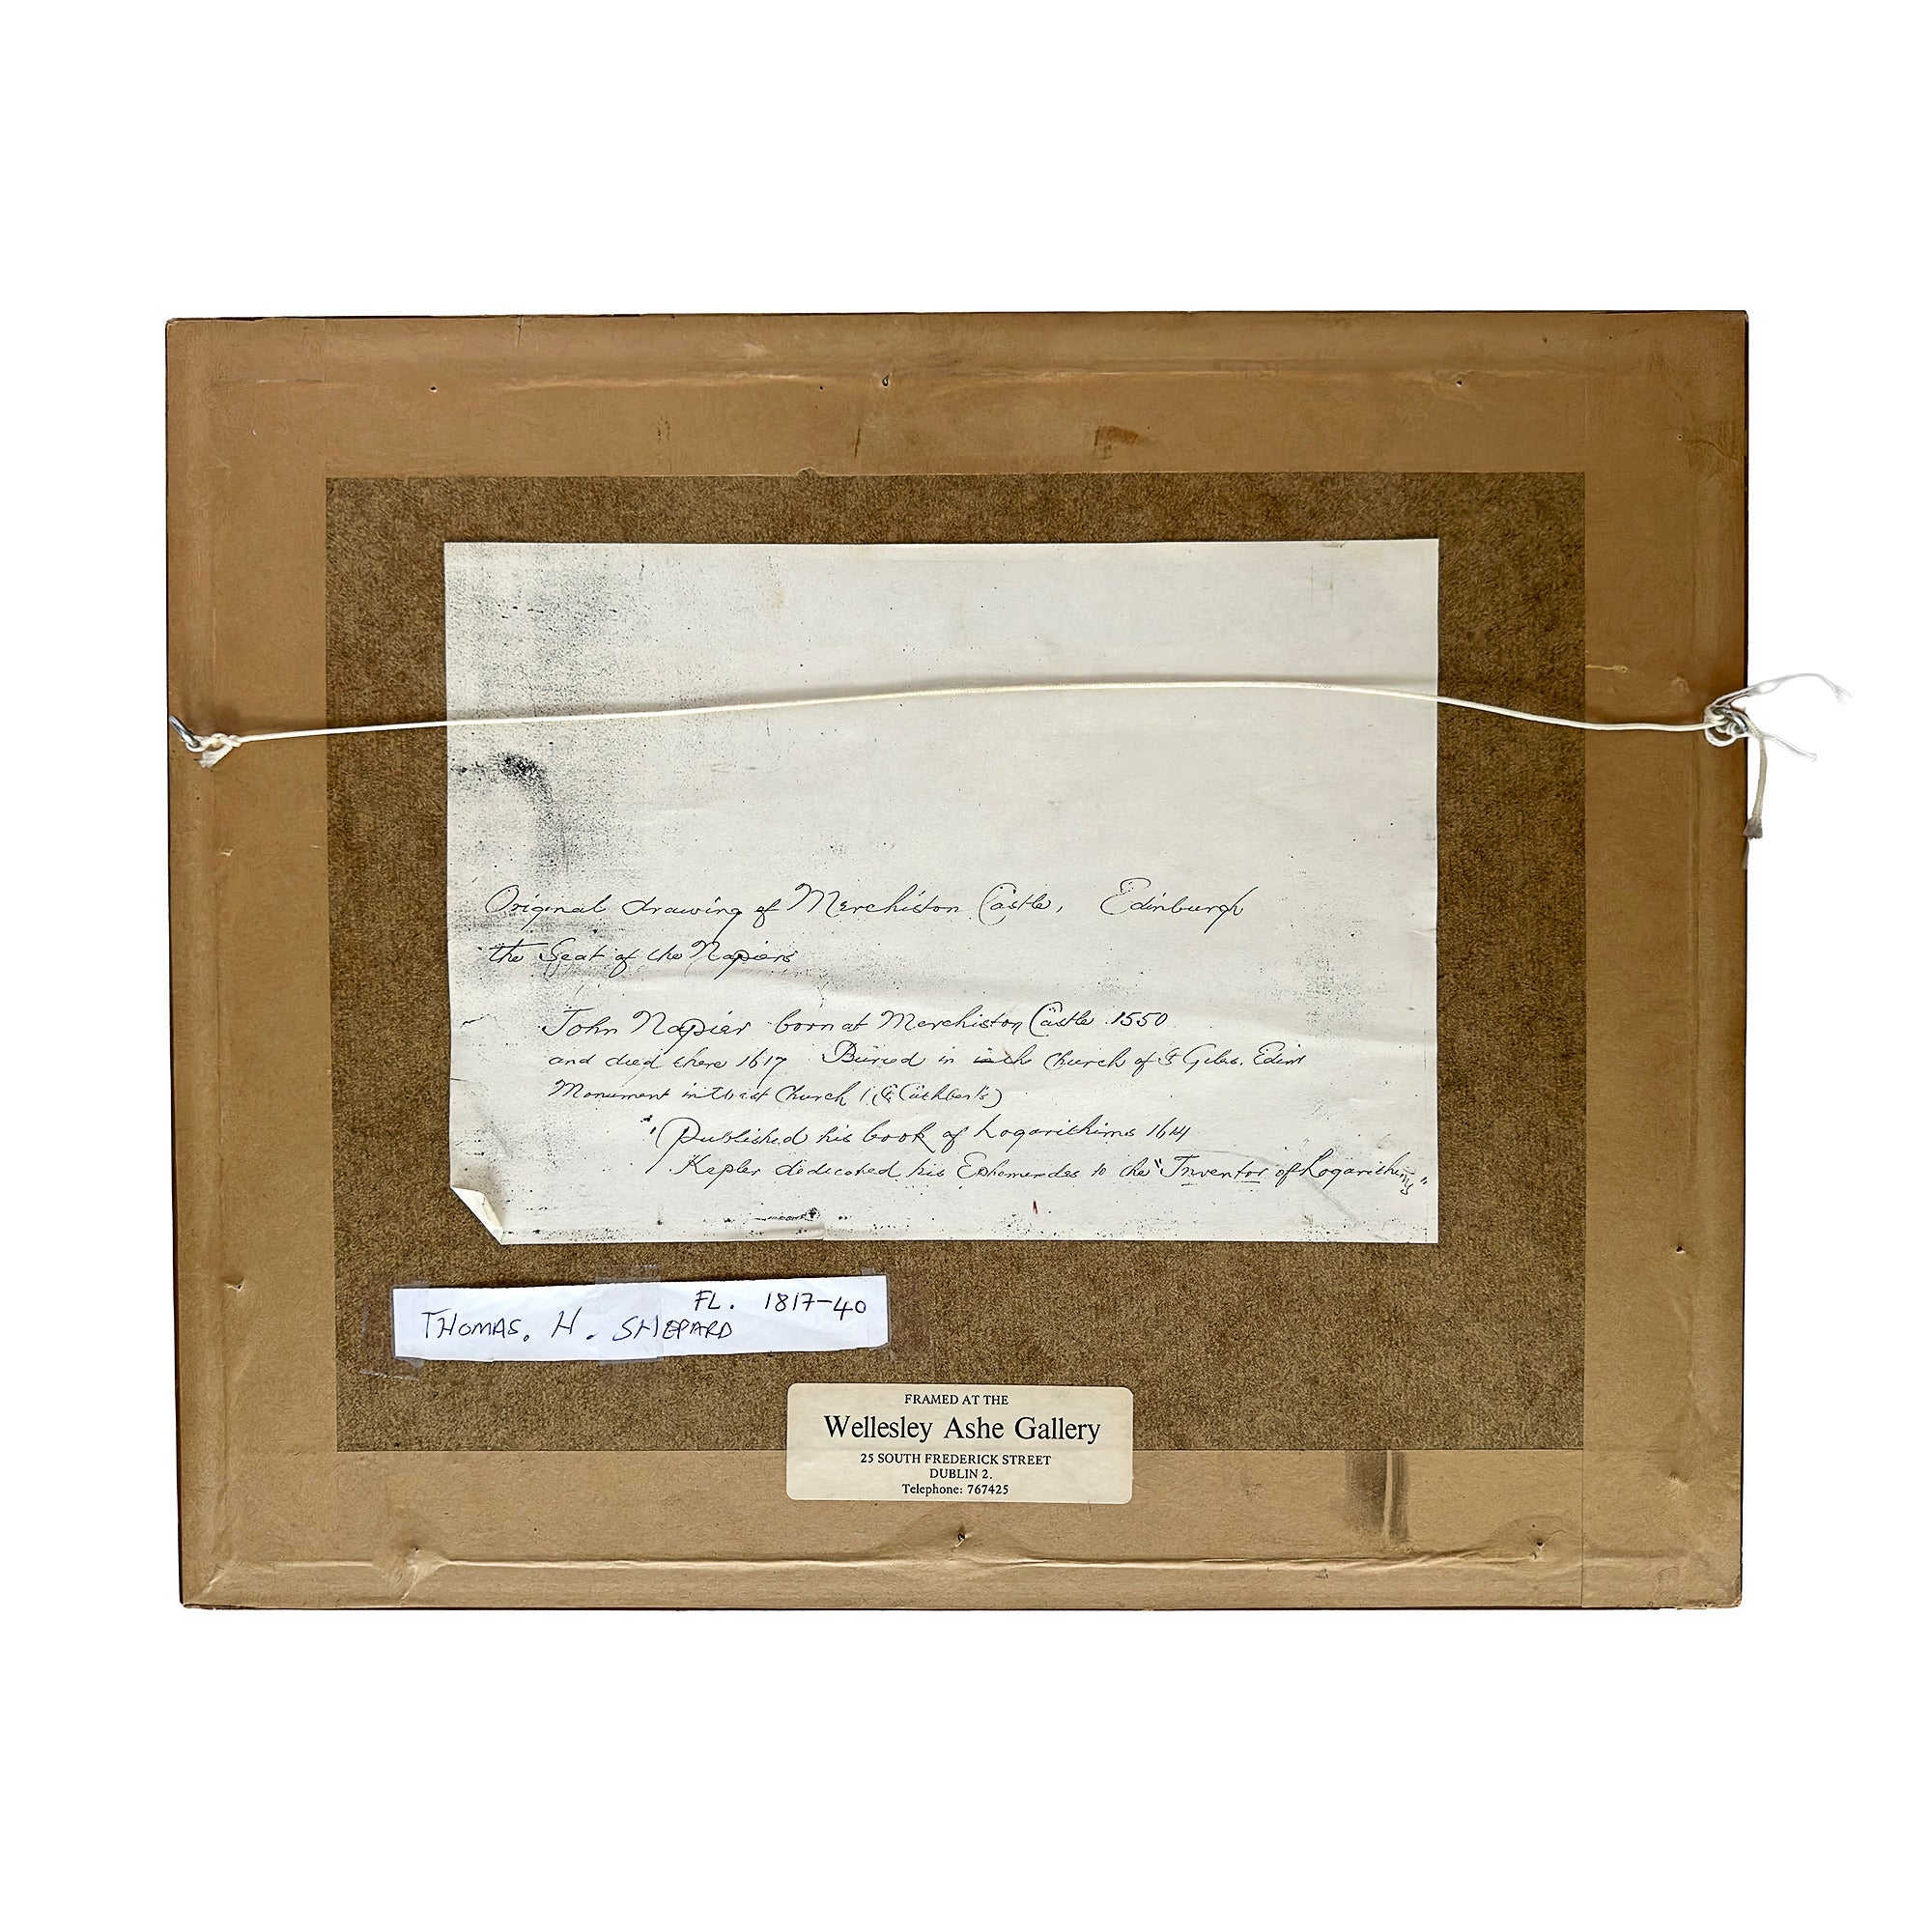 Original drawing of Merchiston Castle, Edinburgh
the Seat of the Napiers
John Napier born at Merchiston Castle 1550
and died there 1617 Buried in the Church of St Giles. Edinr
Monument in West Church (St Cuthberts)
Published his book of Logarithims 1614
Kepler dedicated his Ephemerides to the "Inventor of Logarithims"
FL. 1817-40
THOMAS. H. SHEPARD
FRAMED AT THE
Wellesley Ashe Gallery
25 SOUTH FREDERICK STREET
DUBLIN 2.
Telephone: 767425